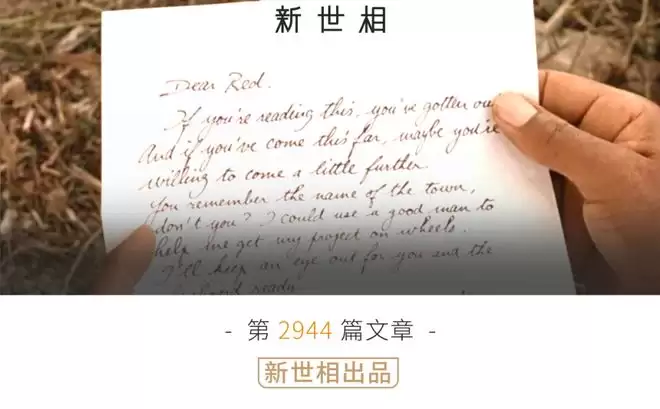 新世相
Dear Red.
If you're reading this, you've gotten ou
And if you've come this far, maybe you're
willing to come a little further.
You remember the name of the town,
don't you? I could use a good man to
help me get my project on wheels.
I'll keep an eye out for you and the
ready
- 第 2944 篇文章 -
新世相出品